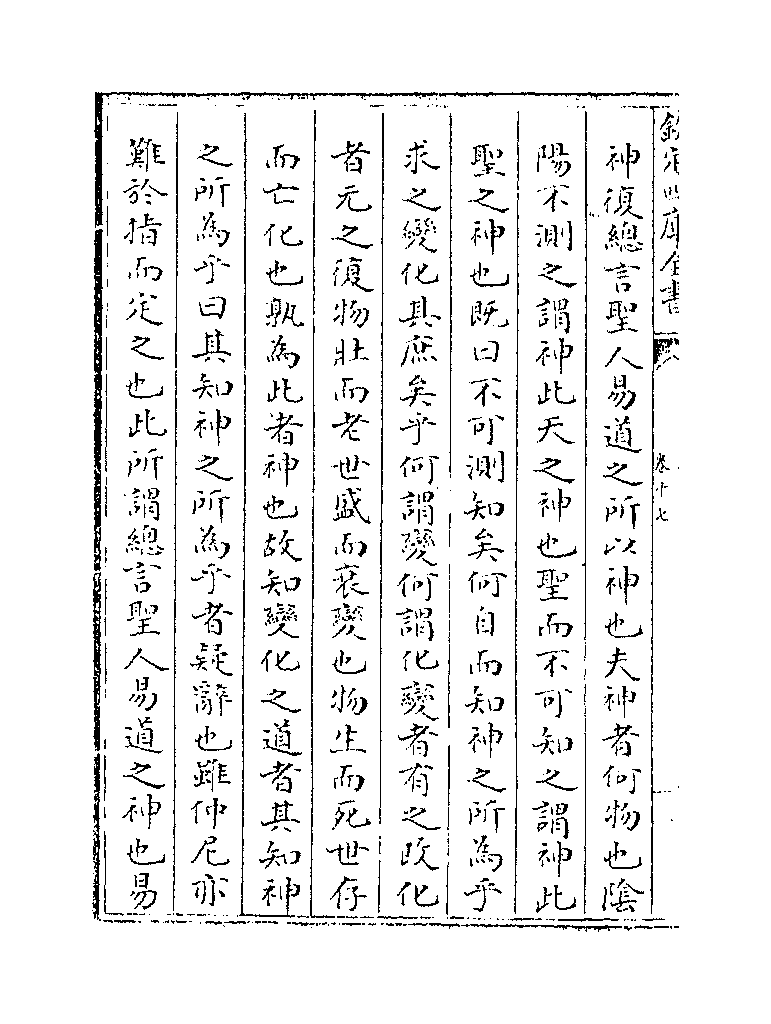 欽定四庫全書
卷十七
神復總言聖人易道之所以神也夫神者何物也陰
陽不測之謂神此天之神也聖而不可知之謂神此
聖之神也既曰不可測知矣何自而知神之所為乎
求之變化其庶矣乎何謂變何謂化變者有之改化
者元之復物壯而老世盛而衰變也物生而死世存
而亡化也孰為此者神也故知變化之道者其知神
之所為乎曰其知神之所為乎者疑辭也雖仲尼亦
難於指而定之也此所謂總言聖人易道之神也易